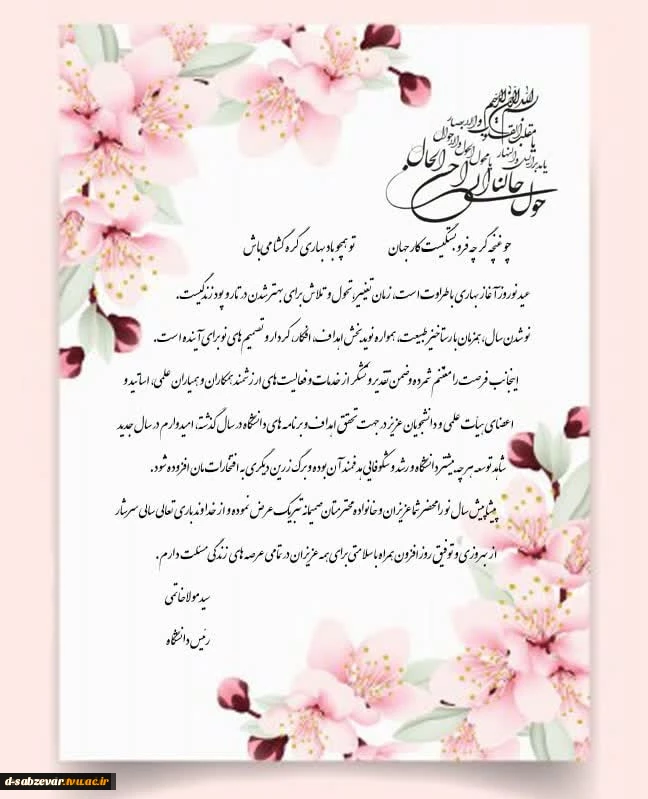 بسم الله الرحمن الرحیم
یا مقلب القلوب والابصار
یا مدبر اللیل والنهار
یا محول الحول والاحوال
حول حالنا الی احسن الحال
چو غنچه گر چه فروبستگیست کار جهان تو همچو باد بهاری گره گشا می باش
عید نوروز آغاز بهاری با طراوت است، زمان تغییر، تحول و تلاش برای بهتر شدن در تار و پود زندگیست.
نو شدن سال، همزمان با رستاخیز طبیعت، همواره نوید بخش اهداف، افکار، کردار و تصمیم های نو برای آینده است.
اینجانب فرصت را مغتنم شمرده و ضمن تقدیر و تشکر از خدمات و فعالیت های ارزشمند همکاران و همیاران علمی، اساتید و
اعضای هیأت علمی و دانشجویان عزیز در جهت تحقق اهداف و برنامه های دانشگاه در سال گذشته، امیدوارم در سال جدید
شاهد توسعه هر چه بیشتر دانشگاه و رشد و شکوفایی هدفمند آن بوده و برگ زرین دیگری به افتخارات مان افزوده شود.
پیشاپیش سال نو را محضر شما عزیزان و خانواده محترمتان صمیمانه تبریک عرض نموده و از خداوند باری تعالی سالی سرشار
از بهروزی و توفیق روز افزون همراه با سلامتی برای همه عزیزان در تمامی عرصه های زندگی مسئلت دارم.
سید مولا خاتمی
رئیس دانشگاه
d-sabzevar.tvu.ac.ir